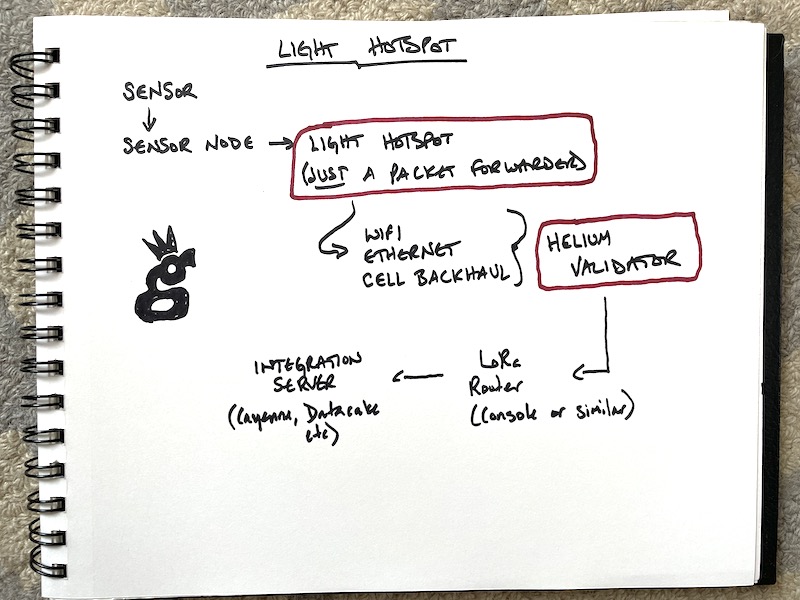 LIGHT HOTSPOT
SENSOR
SENSOR NODE
LIGHT HOTSPOT
(JUST A PACKET FORWARDER)
WIFI
ETHERNET
CELL BACKHAUL
HELIUM
VALIDATOR
LoRa
Router
(Console or similar)
INTEGRATION
SERVER
(Cayenne, Datacake
etc)